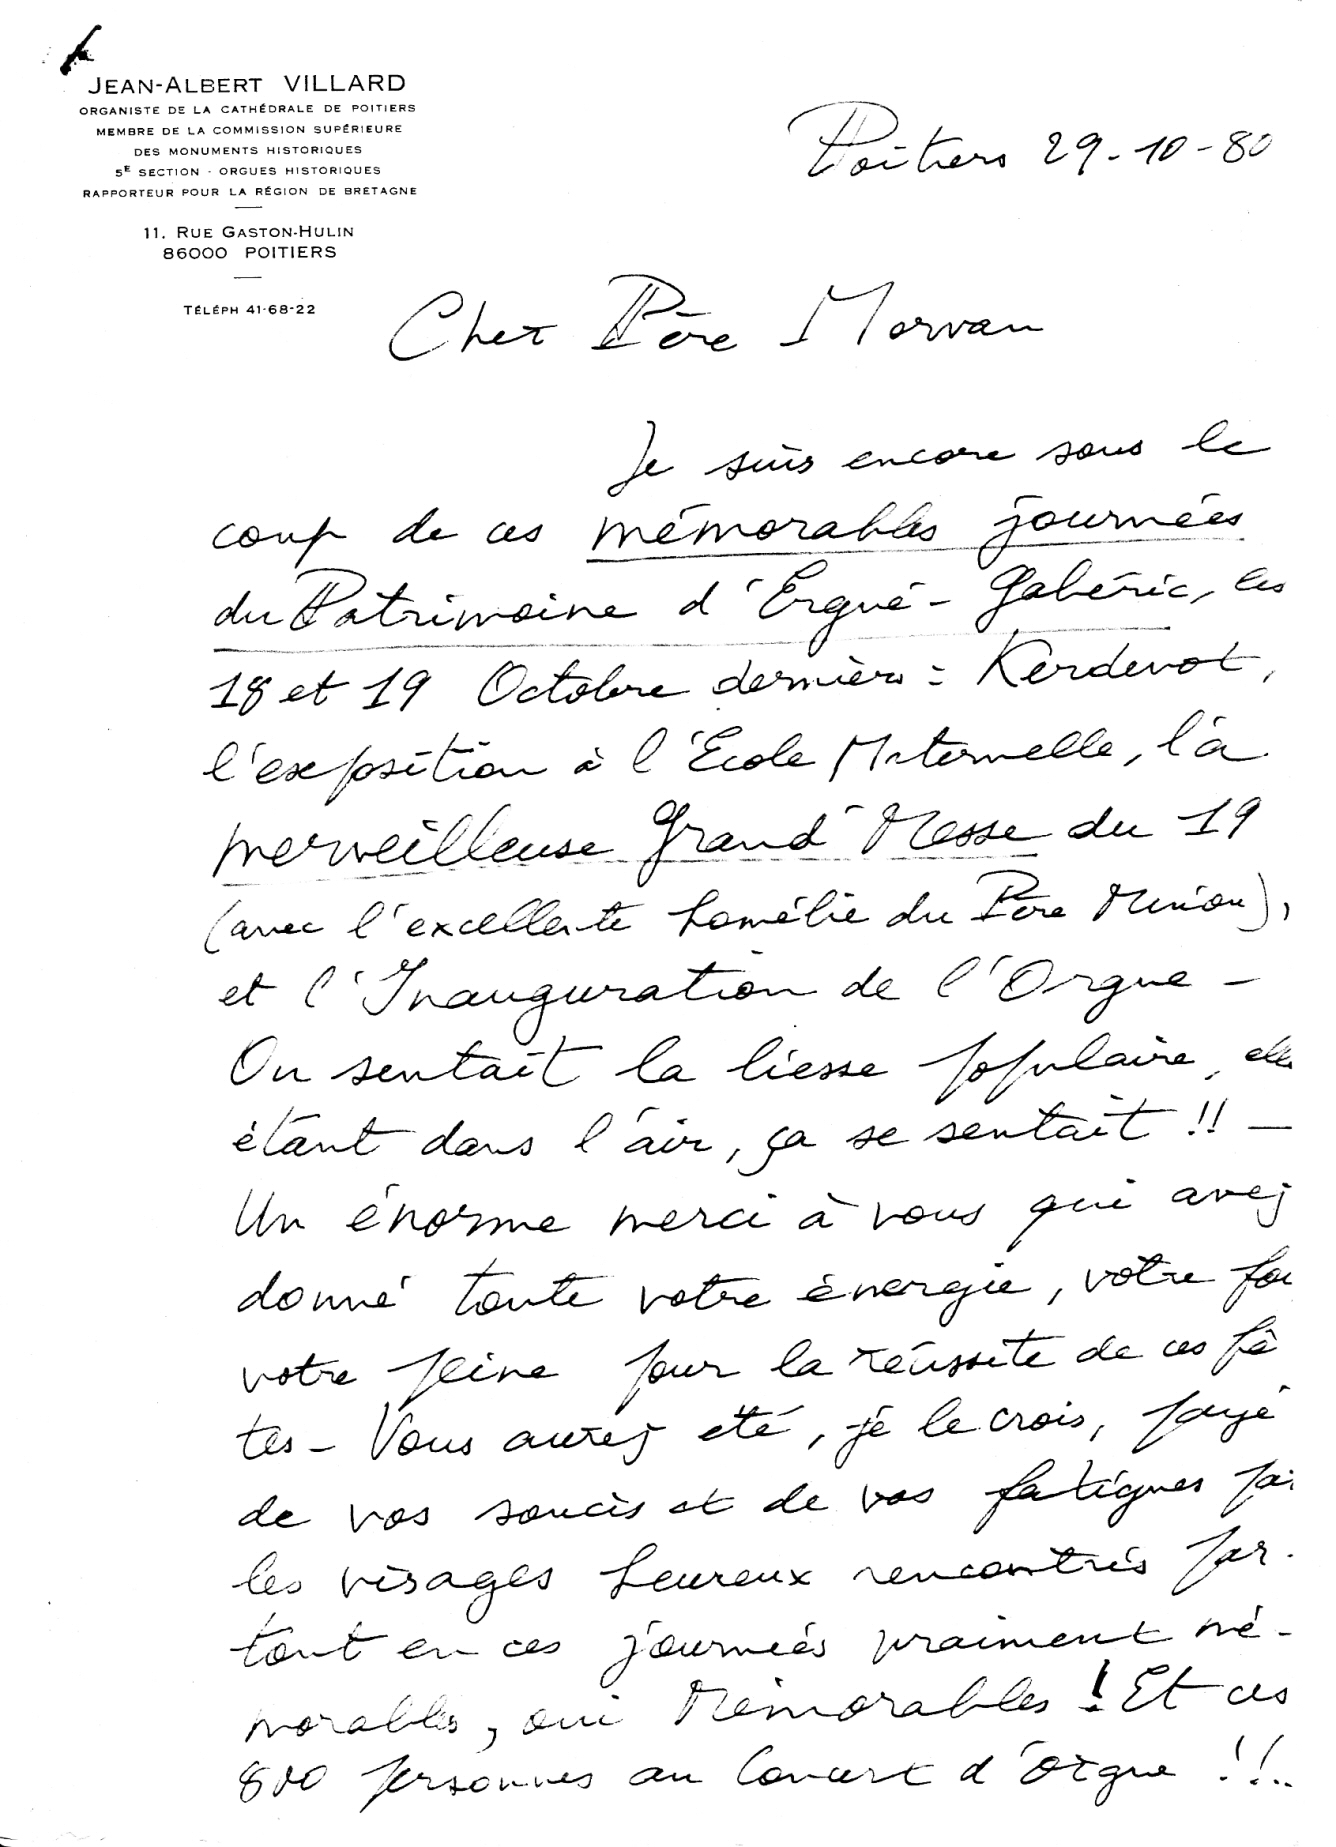 JEAN-ALBERT VILLARD
ORGANISTE DE LA CATHÉDRALE DE POITIERS
MEMBRE DE LA COMMISSION SUPÉRIEURE
DES MONUMENTS HISTORIQUES
5E SECTION - ORGUES HISTORIQUES
RAPPORTEUR POUR LA RÉGION DE BRETAGNE
11, RUE GASTON-HULIN
86000 POITIERS
TÉLÉPH 41-68-22
Poitiers 29-10-80
Cher Père Morvan
Je suis encore sous le
coup de ces mémorables journées
du Patrimoine d'Ergué-Gabéric, les
18 et 19 Octobre derniers : Kerdevot,
l'exposition à l'Ecole Maternelle, la
merveilleuse Grand'Messe du 19
(avec l'excellente homélie du Père Miniou),
et l'Inauguration de l'Orgue -
On sentait la liesse populaire, elle
étant dans l'air, ça se sentait !! -
Un énorme merci à vous qui avez
donné toute votre énergie, votre foi
votre peine pour la réussite de ces fê
tes - Vous aurez été, je le crois, payé
de vos soucis et de vos fatigues par
les visages heureux rencontrés par-
tout en ces journées vraiment mé-
morables, oui Mémorables ! Et ces
800 personnes au Concert d'orgue !!..